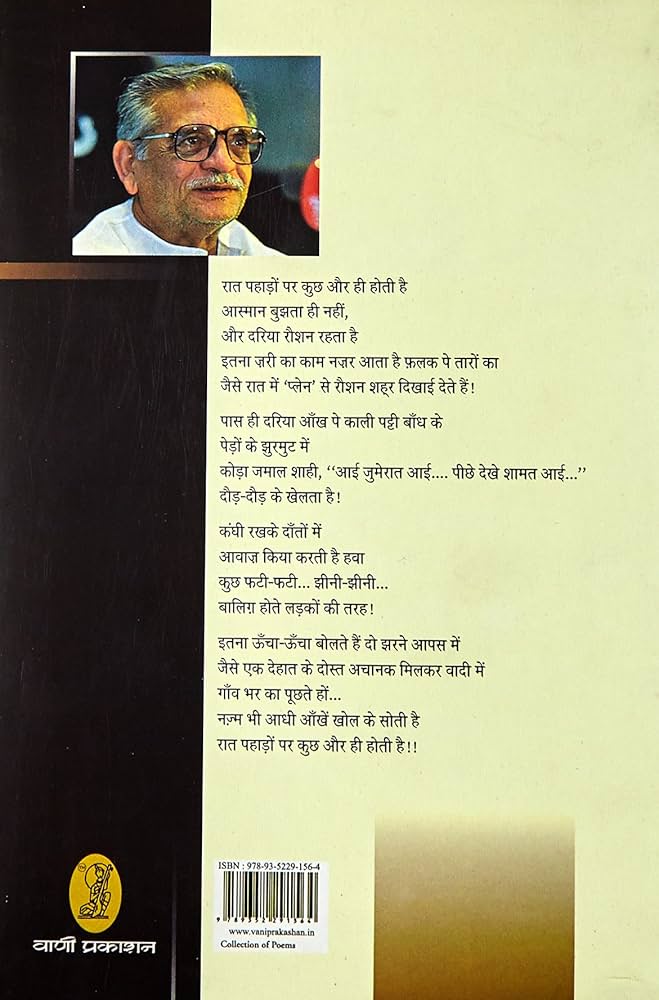 रात पहाड़ों पर कुछ और ही होती है
आस्मान बुझता ही नहीं,
और दरिया रौशन रहता है
इतना ज़री का काम नज़र आता है फ़लक पे तारों का
जैसे रात में ‘प्लेन’ से रौशन शह्र दिखाई देते हैं!
पास ही दरिया आँख पे काली पट्टी बाँध के
पेड़ों के झुरमुट में
कोड़ा जमाल शाही, ‘‘आई जुमेरात आई.... पीछे देखे शामत आई...’’
दौड़-दौड़ के खेलता है!
कंघी रखके दाँतों में
आवाज़ किया करती है हवा
कुछ फटी-फटी... झीनी-झीनी...
बालिग़ होते लड़कों की तरह!
इतना ऊँचा-ऊँचा बोलते हैं दो झरने आपस में
जैसे एक देहात के दोस्त अचानक मिलकर वादी में
गाँव भर का पूछते हों...
नज़्म भी आधी आँखें खोल के सोती है
रात पहाड़ों पर कुछ और ही होती है!!
ISBN : 978-93-5229-156-4
9 789352 291564
www.vaniprakashan.in
Collection of Poems
वाणी प्रकाशन